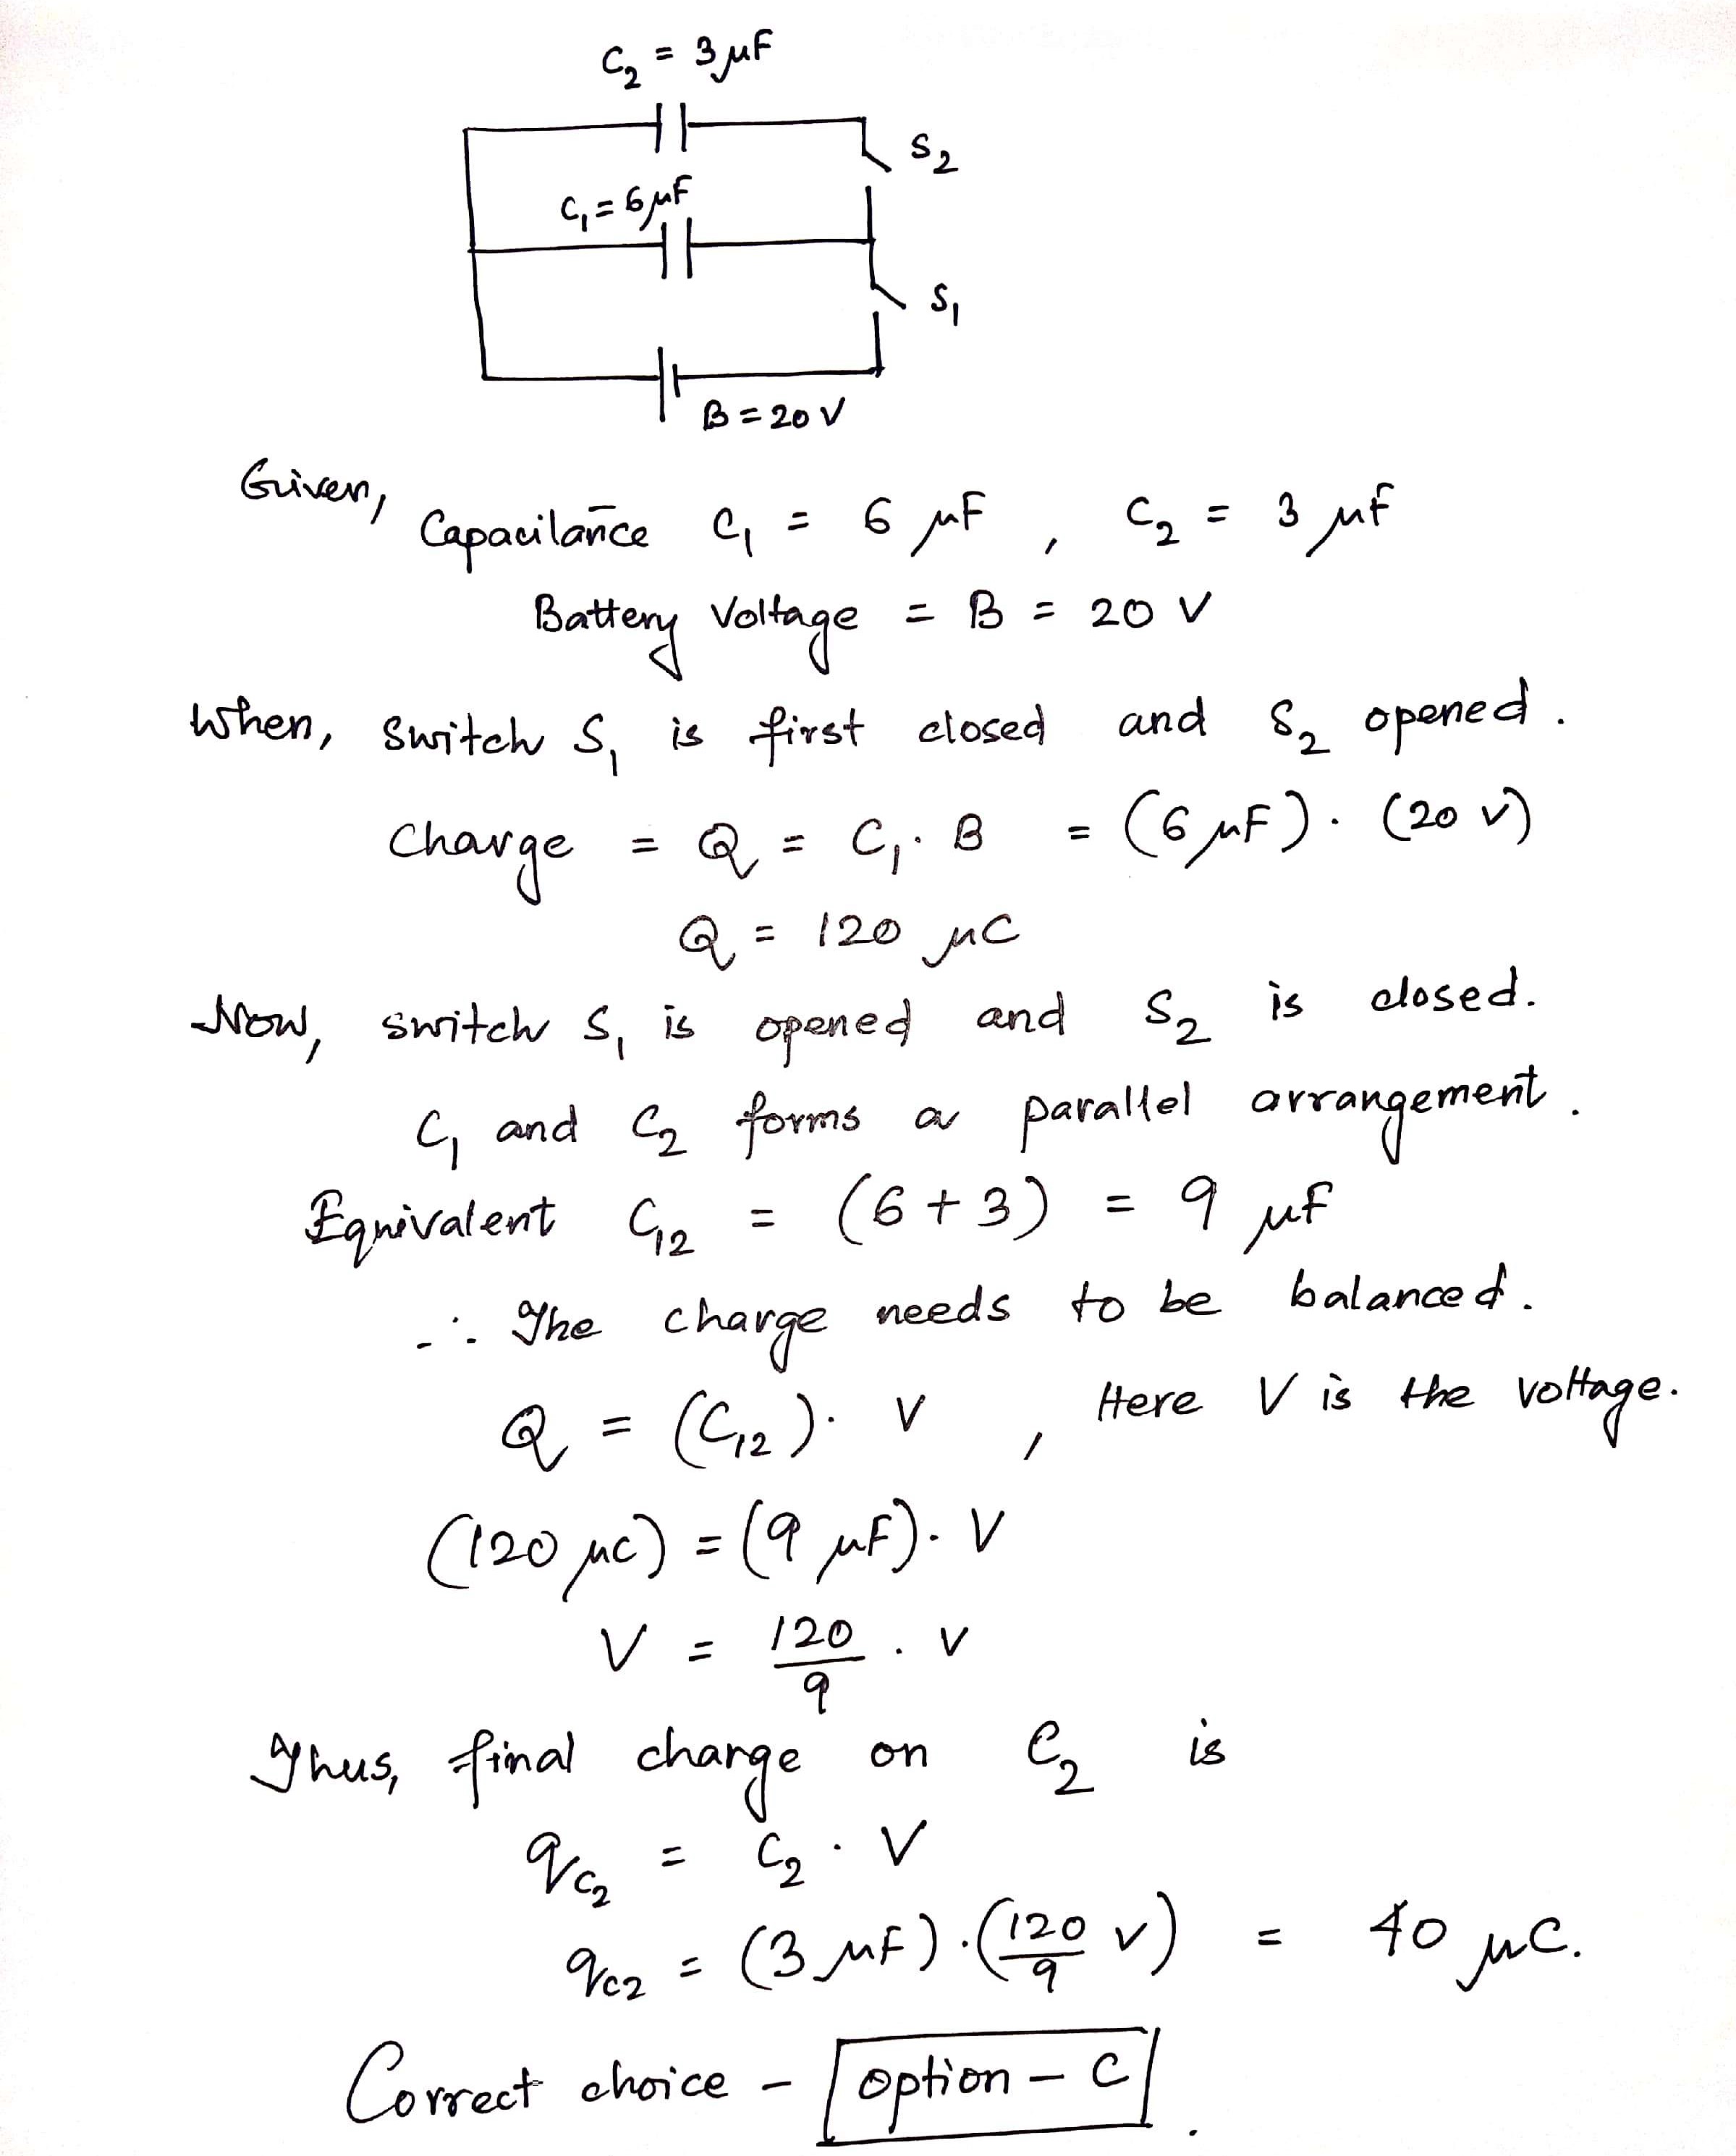 C₂ = 3 μF
S₂
C₁ = 6 μF
S₁
B = 20 V
Given,
Capacitance C₁ = 6 μF , C₂ = 3 μF
Battery Voltage = B = 20 V
When, switch S₁ is first closed and S₂ opened.
Charge = Q = C₁ . B = (6 μF) . (20 V)
Q = 120 μC
Now, switch S₁ is opened and S₂ is closed.
C₁ and C₂ forms a parallel arrangement.
Equivalent C₁₂ = (6 + 3) = 9 μF
∴ The charge needs to be balanced.
Q = (C₁₂) . V , Here V is the voltage.
(120 μC) = (9 μF) . V
V = 120/9 . V
Thus, final charge on C₂ is
q_C₂ = C₂ . V
q_C2 = (3 μF) . (120/9 V) = 40 μC.
Correct choice - option - C .